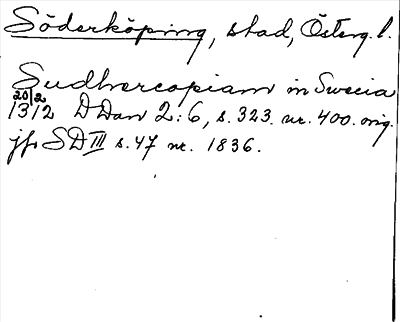 Söderköping, stad, Österg. l.
Sudhercopiam in Swecia
20/2
1312 D Dan 2:6, s. 323. nr. 400. orig.
jfr SD III s. 47 nr. 1836.